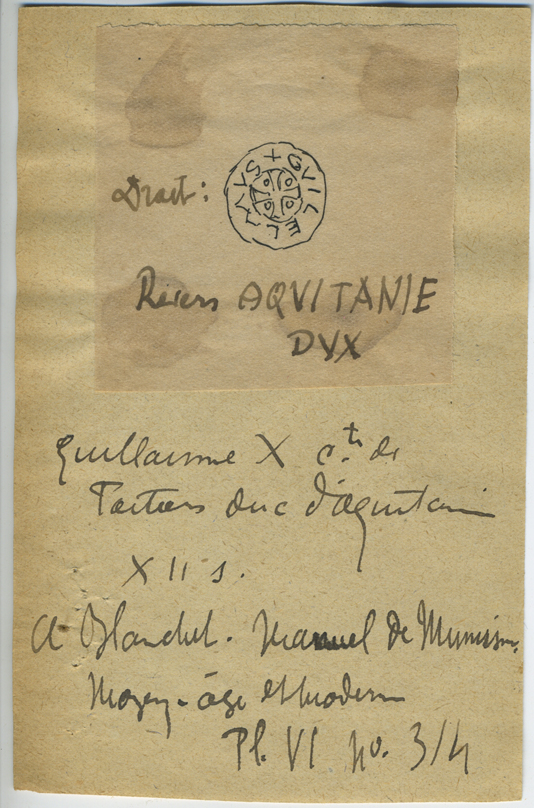 Droit:
+ GVILELMVS
Revers AQVITANIE
DVX
Guillaume X cte de
Poitiers duc d'Aquitaine
XII s.
A Blanchet. Manuel de Numism.
Moyen-âge et moderne
Pl. VI no. 3/4